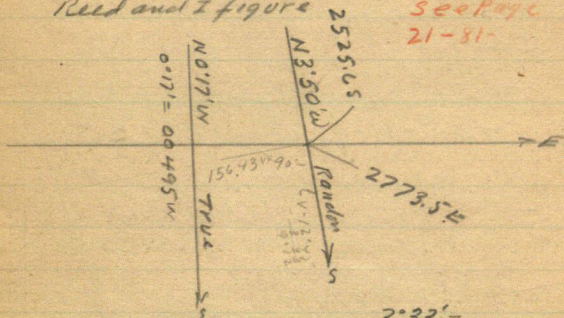 Reed and I figure
See Page
21-81-
2525.6S
N3°50'W
N0°17'W
0°17'= 00495W
E
156.43
90
2773.5E
Random
TRUE
S
S
2°22'-